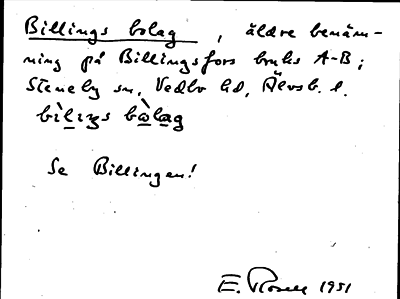 Billings bolag, äldre benäm-
ning på Billingsfors bruks A-B;
Steneby sn, Vedbo hd, Älvsb. l.
bìliŋs bòlag
Se Billingen!
E. Rosell 1951